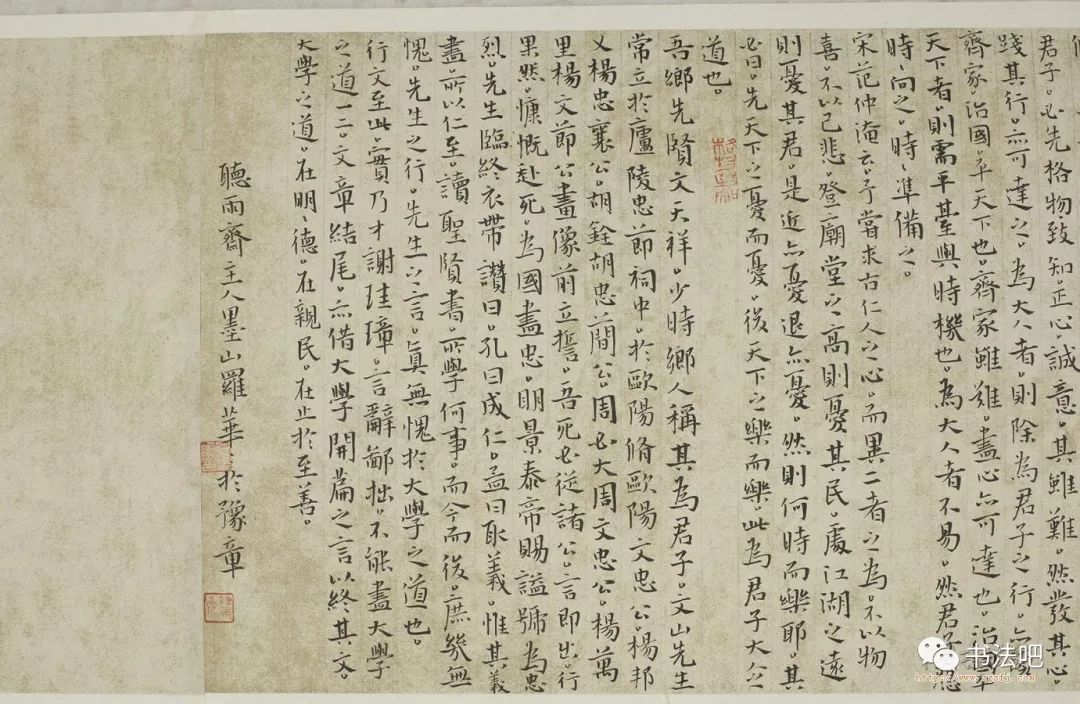 君子。必先格物致知。正心。誠意。其雖難。然發其心。
踐其行。亦可達之。為大人者。則除為君子之行。亦要
齊家。治國。平天下也。齊家雖難。盡心亦可達也。治國平
天下者。則需平臺與時機也。為大人者不易。然君子應
時、向之。時、準備之。
宋范仲淹云。予嘗求古仁人之心。而異二者之為。不以物
喜。不以己悲。登廟堂之高則憂其民。處江湖之遠
則憂其君。是近亦憂退亦憂。然則何時而樂耶。其
必曰。先天下之憂而憂。後天下之樂而樂。此為君子大人
道也。
吾鄉先賢文天祥。少時鄉人稱其為君子。文山先生
常立於廬陵忠節祠中。於歐陽脩歐陽文忠公。楊邦
乂楊忠襄公。胡銓胡忠簡公。周必大周文忠公。楊萬
里楊文節公畫像前立誓。吾死必從諸公。言即出。行
果然。慷慨赴死。為國盡忠。明景泰帝賜謚號為忠
烈。先生臨終衣帶讚曰。孔曰成仁。孟曰取義。惟其義
盡。所以仁至。讀聖賢書。所學何事。而今而後。庶幾無
愧。先生之行。先生之言。真無愧於大學之道也。
行文至此。實乃才謝珪璋。言辭鄙拙。不能盡大學
之道一二。文章結尾。亦借大學開篇之言以終其文。
大學之道。在明、德。在親民。在止於至善。
聽雨齋主人墨山羅華、於豫章
书法吧